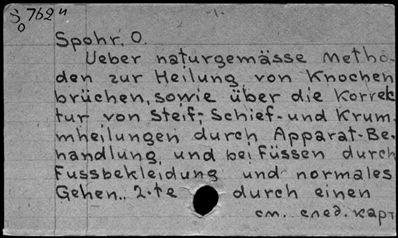 S 762 и
0
-1-
Spohr, O.
Ueber naturgemässe Metho-
den zur Heilung von Knochen
brüchen, sowie über die Korrek
tur von Steif-, Schief- und Krum
mheilungen durch Apparat-Be-
handlung, und bei Füssen durch
Fussbekleidung und normales
Gehen.. 2-te durch einen
см. след. карт